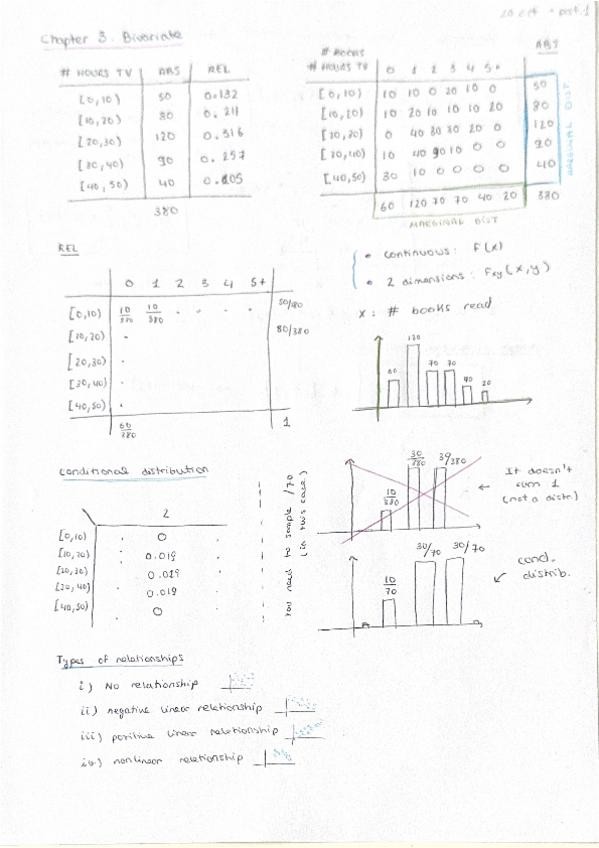 20 oct
Chapter 3. Bivariate
# HOURS TV ABS REL
[0,10) 50 0.132
[10,20) 80 0.211
[20,30) 120 0.316
[30,40) 90 0.257
[40,50) 40 0.105
380
# BOOKS
# HOURS TV 0 1 2 3 4 5+ ABS
[0,10) 10 10 0 20 10 0 50
[10,20) 10 20 10 10 10 20 80
[20,30) 0 40 30 30 20 0 120
[30,40) 10 40 30 10 0 0 90
[40,50) 30 10 0 0 0 0 40
60 120 70 70 40 20 380
MARGINAL DIST
MARGINAL DIST
REL
0 1 2 3 4 5+
[0,10) 10/380 10/380 50/380
[10,20) 80/380
[20,30)
[30,40)
[40,50)
60/380 1
• continuous: F(x)
• 2 dimensions: Fxy(x,y)
x: # books read
60 120 70 70 40 20
conditional distribution
2
[0,10) 0
[10,20) 0.019
[20,30) 0.019
[30,40) 0.019
[40,50) 0
you need to sample /70
(in this case)
10/380 30/380 30/380
It doesn't
sum 1
(not a distr.)
10/70 30/70 30/70
cond.
distrib.
Types of relationships
i) No relationship
ii) negative linear relationship
iii) positive linear relationship
iv) nonlinear relationship